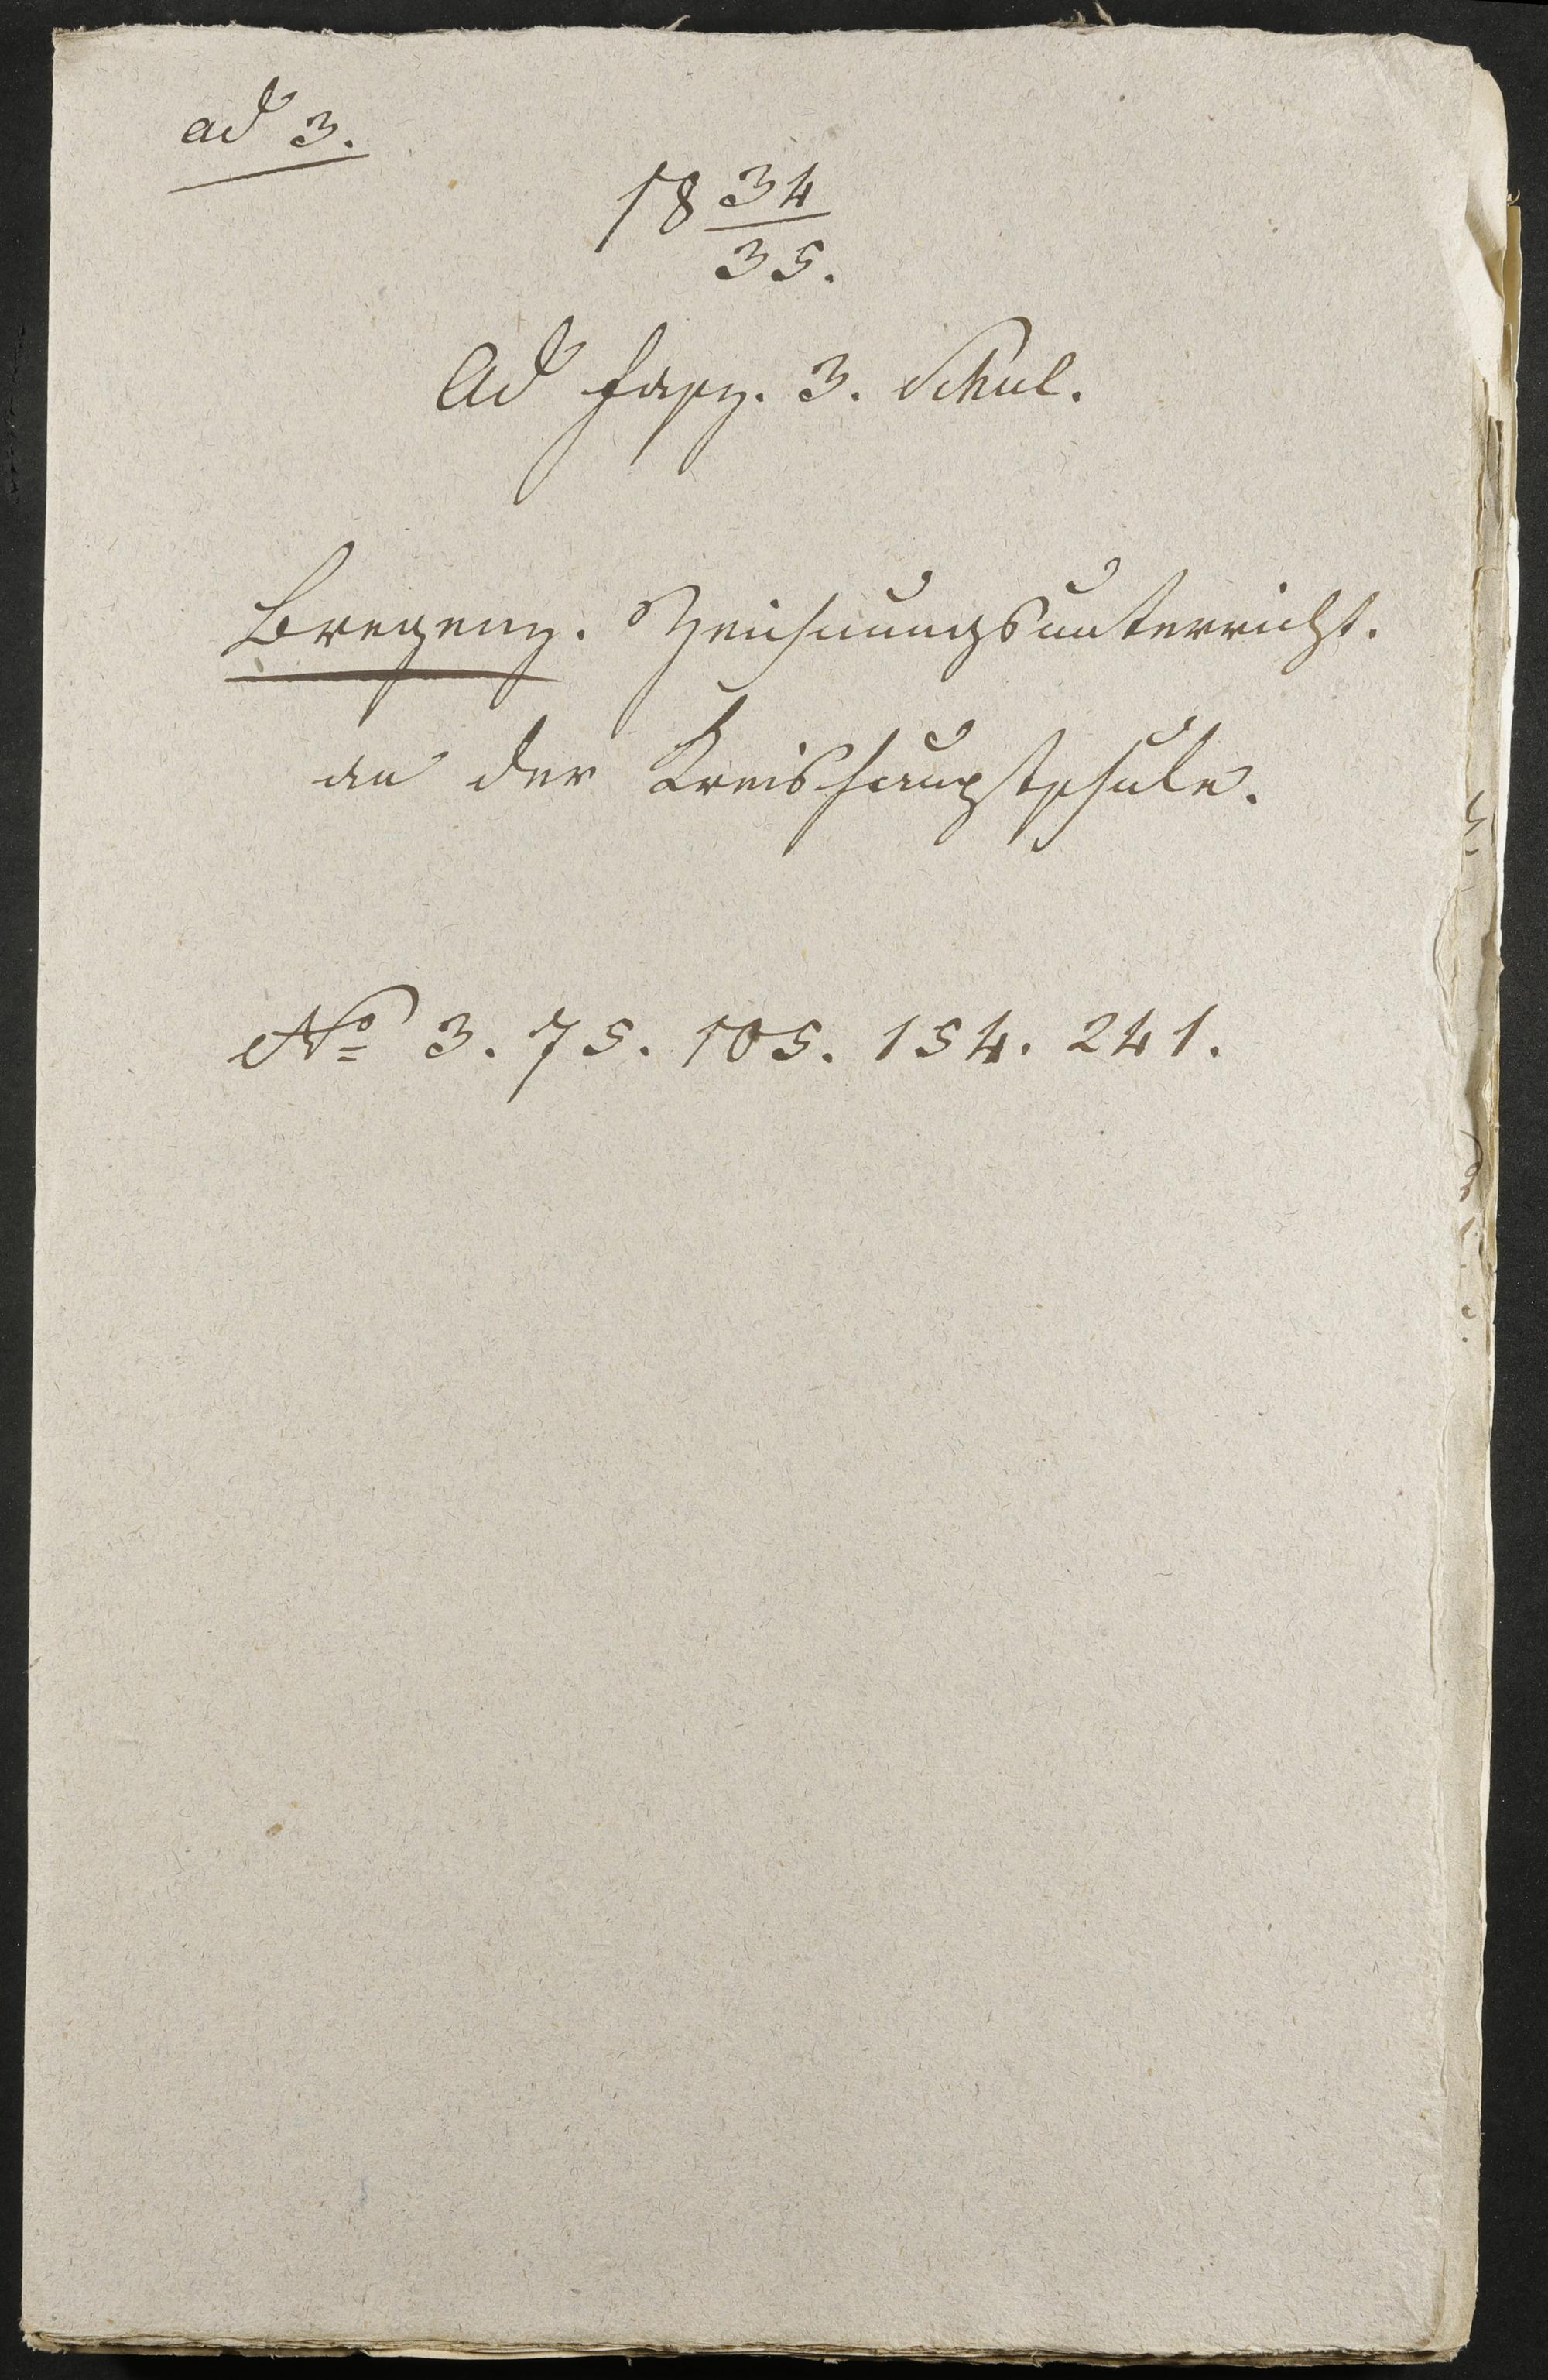 ad 3.
18 34
35.
Ad Fasz. 3. Schul.
Bregenz. Zeichnungsunterricht.
an der Kreishauptschule.
No 3. 75. 105. 154. 241.